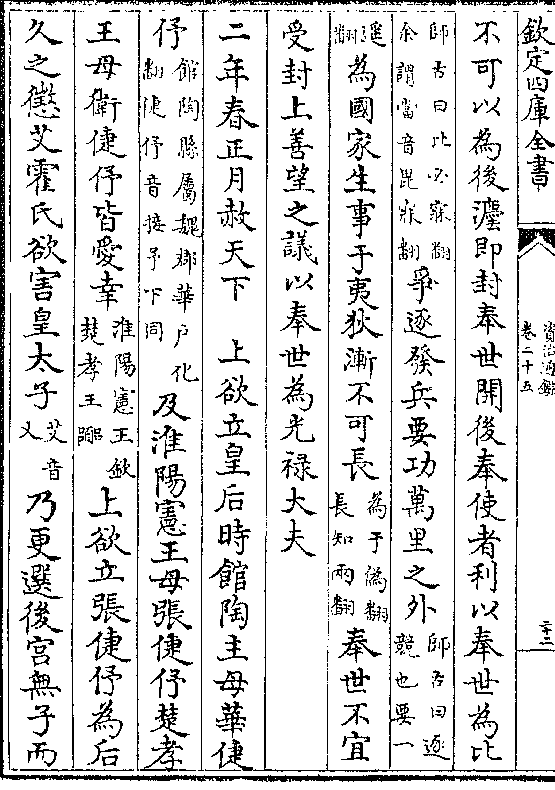 欽定四庫全書
資治通鑑
卷二十五
三十二
不可以為後灋即封奉世開後奉使者利以奉世為比
師古曰比必寐翻
余謂當音毘寐翻
爭逐發兵要功萬里之外
師古曰逐
競也要一
遥翻
為國家生事于夷狄漸不可長
為于偽翻
長知兩翻
奉世不宜
受封上善望之議以奉世為光禄大夫
二年春正月赦天下 上欲立皇后時館陶主母華倢
伃
館陶縣屬魏郡華户化
翻倢伃音接予下同
及淮陽憲王母張倢伃楚孝
王母衛倢伃皆愛幸
淮陽憲王欽
楚孝王囂
上欲立張倢伃為后
久之懲艾霍氏欲害皇太子
艾音
乂
乃更選後宫無子而